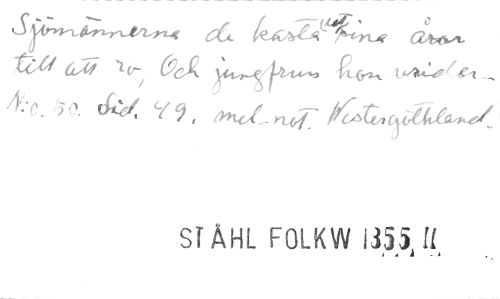 Sjömännerna de kasta ut sina åror
till att ro, Och jungfrun hon vrider_
N:o. 50. Sid. 49. mel. not. Westergöthland.
STÅHL FOLKW 1355, II